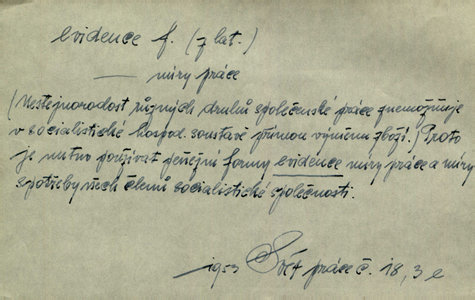 evidence f. (z lat.)
— míry práce
(Nestejnorodost různých druhů společenské práce znemožňuje
v socialistické hospod. soustavě přímou výměnu zboží.) Proto
je nutno používat peněžní formy evidence míry práce a míry
spotřeby všech členů socialistické společnosti.
1953 Svět práce č. 18, 3